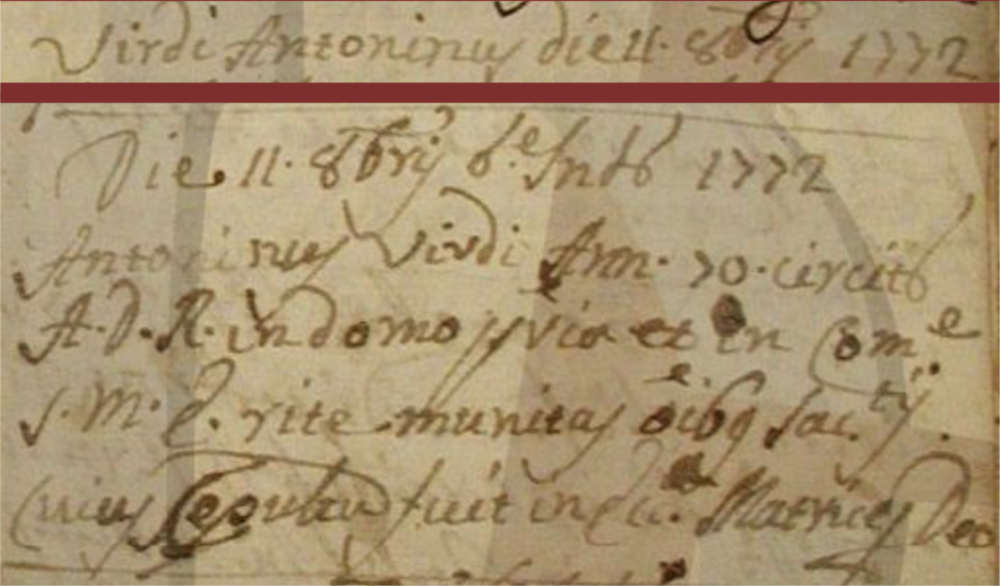 Virdi Antoninus die 11. 8bris 1772
Die 11. 8bris 6.e Inds 1772
Antoninus Virdi Ann. 70. circits
A. D. R. in domo ppria et in Com.e
S. M. E. rite munitus oibq Sac.tis.
Cuius fuit in Ecc.a Matrices Deo